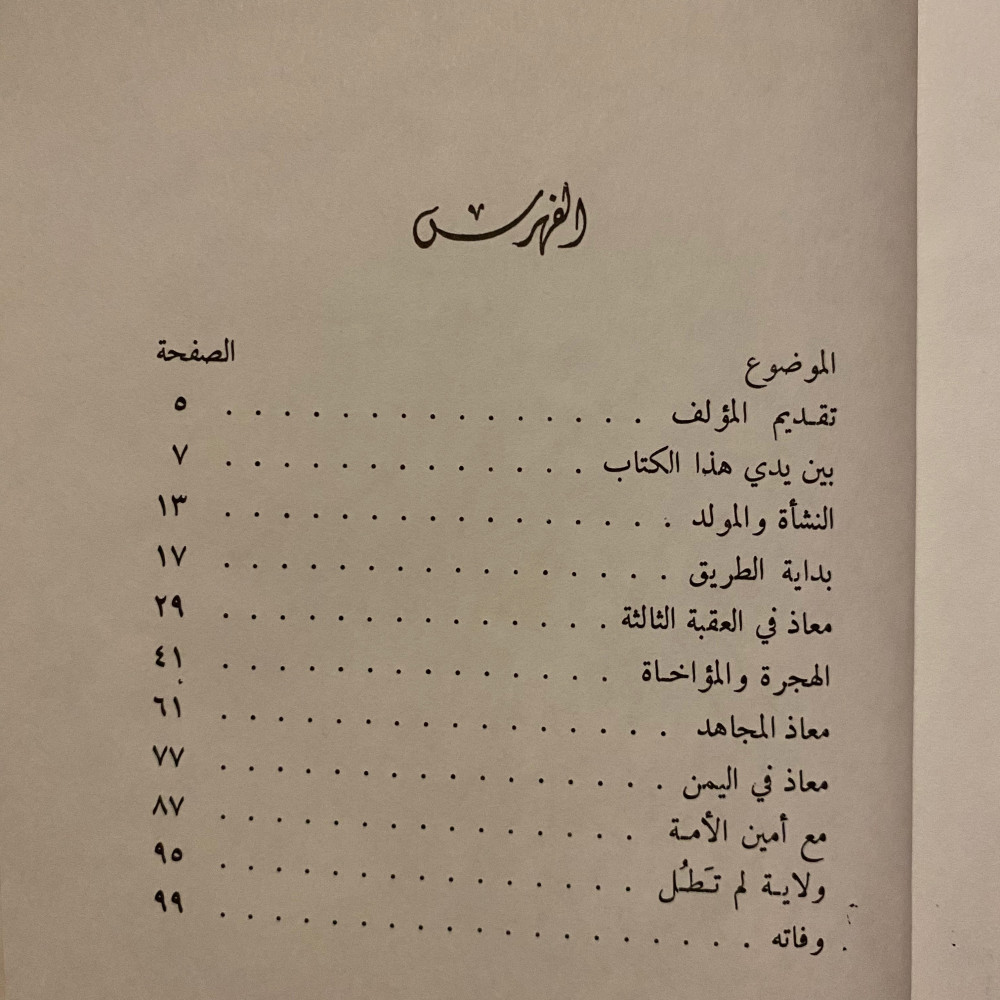 الفهرس
الموضوع الصفحة
تقديم المؤلف . . . . . . . . . . . . . . . ٥
بين يدي هذا الكتاب . . . . . . . . . . . . . ٧
النشأة والمولد . . . . . . . . . . . . . . . . ١٣
بداية الطريق . . . . . . . . . . . . . . . . ١٧
معاذ في العقبة الثالثة . . . . . . . . . . . . . . ٢٩
الهجرة والمؤاخاة . . . . . . . . . . . . . . ٤١
معاذ المجاهد . . . . . . . . . . . . . . . . ٦١
معاذ في اليمن . . . . . . . . . . . . . . . . ٧٧
مع أمين الأمة . . . . . . . . . . . . . . . ٨٧
ولاية لم تَطُل . . . . . . . . . . . . . . . ٩٥
وفاته . . . . . . . . . . . . . . . . . . . ٩٩